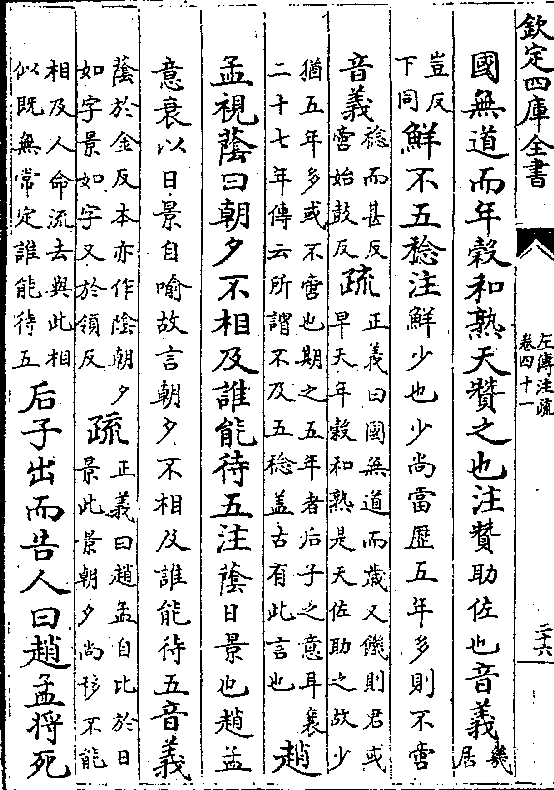 欽定四庫全書
左傳注疏
卷四十一
二十六
國無道而年穀和熟天贊之也注贊助佐也音義幾居
豈反下同鮮不五稔注鮮少也少尚當歷五年多則不啻
音義稔而甚反啻始鼓反疏正義曰國無道而歲又饑則君或早夭年穀和熟是天佐助之故少
猶五年多或不啻也期之五年者后子之意耳襄二十七年傳云所謂不及五稔蓋古有此言也趙
孟視蔭曰朝夕不相及誰能待五注蔭日景也趙孟
意衰以日景自喻故言朝夕不相及誰能待五音義
蔭於金反本亦作陰朝夕如字景如字又於領反疏正義曰趙孟自比於日景此景朝夕尚移不能
相及人命流去與此相似既無常定誰能待五后子出而告人曰趙孟將死